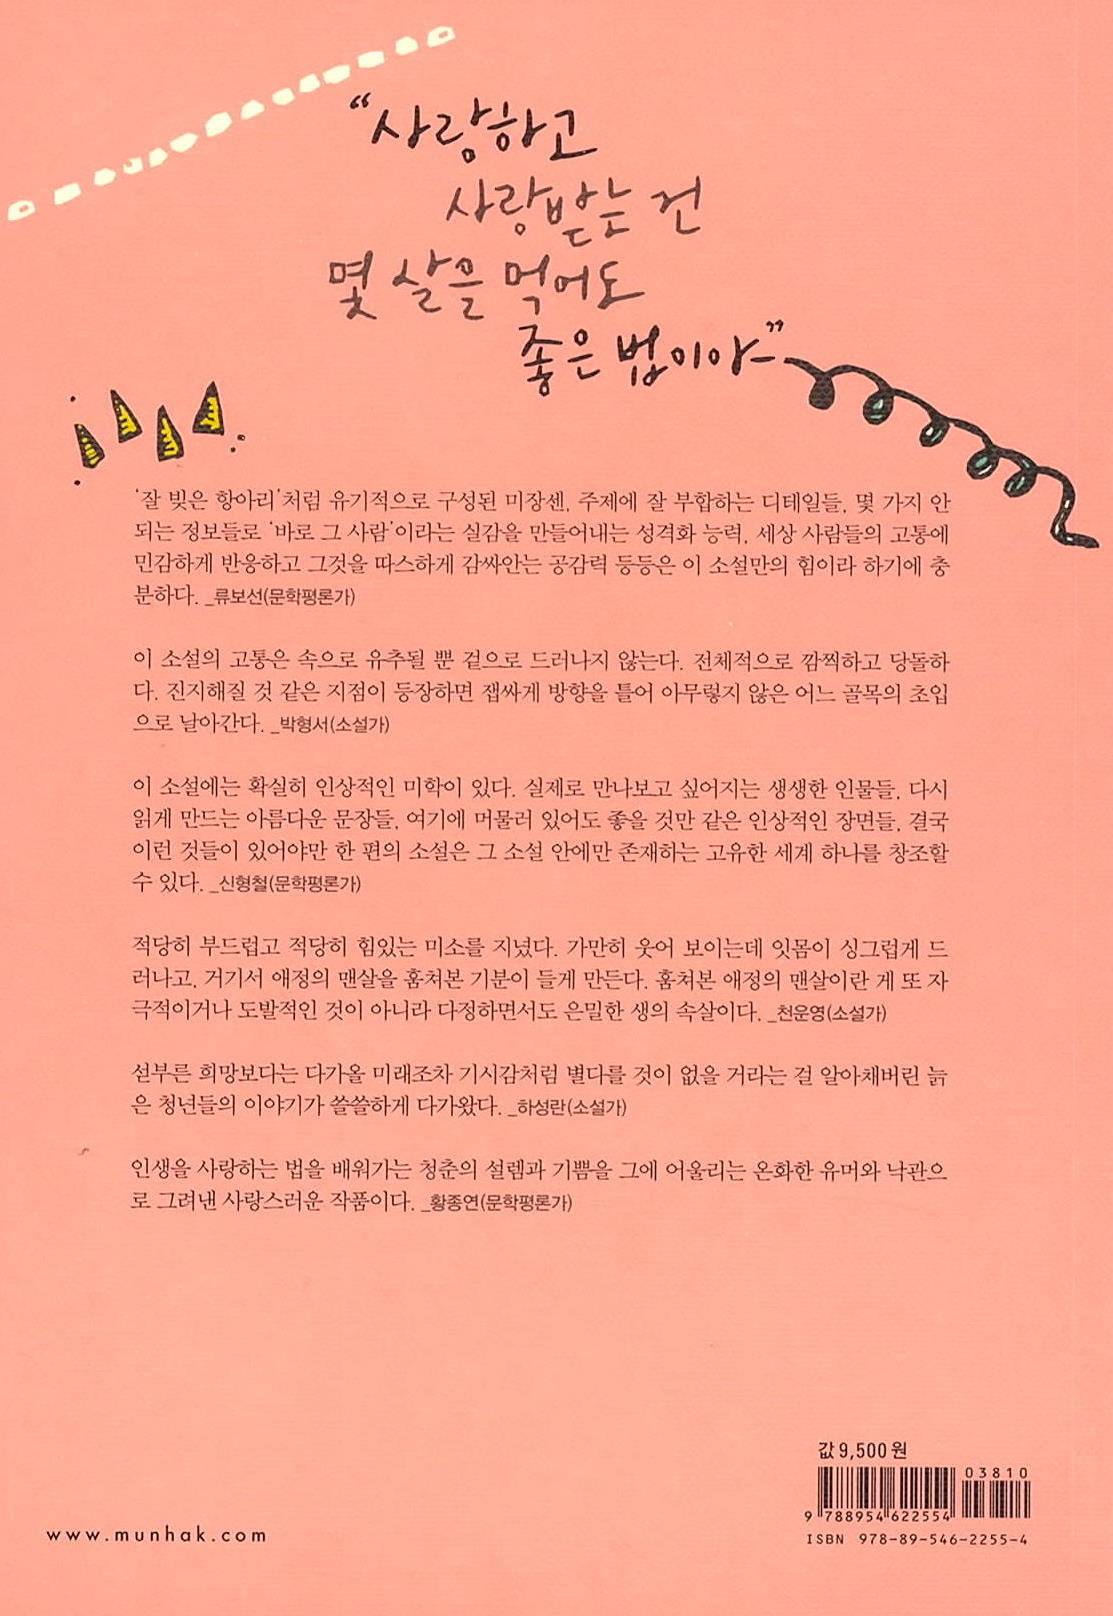 “사랑하고
사랑받는 건
몇 살을 먹어도
좋은 법이야”
‘잘 빚은 항아리’처럼 유기적으로 구성된 미장센, 주제에 잘 부합하는 디테일들, 몇 가지 안
되는 정보들로 ‘바로 그 사람’이라는 실감을 만들어내는 성격화 능력, 세상 사람들의 고통에
민감하게 반응하고 그것을 따스하게 감싸안는 공감력 등등은 이 소설만의 힘이라 하기에 충
분하다. _류보선(문학평론가)
이 소설의 고통은 속으로 유추될 뿐 겉으로 드러나지 않는다. 전체적으로 깜찍하고 당돌하
다. 진지해질 것 같은 지점이 등장하면 잽싸게 방향을 틀어 아무렇지 않은 어느 골목의 초입
으로 날아간다. _박형서(소설가)
이 소설에는 확실히 인상적인 미학이 있다. 실제로 만나보고 싶어지는 생생한 인물들, 다시
읽게 만드는 아름다운 문장들, 여기에 머물러 있어도 좋을 것만 같은 인상적인 장면들, 결국
이런 것들이 있어야만 한 편의 소설은 그 소설 안에만 존재하는 고유한 세계 하나를 창조할
수 있다. _신형철(문학평론가)
적당히 부드럽고 적당히 힘있는 미소를 지녔다. 가만히 웃어 보이는데 잇몸이 싱그럽게 드
러나고, 거기서 애정의 맨살을 훔쳐본 기분이 들게 만든다. 훔쳐본 애정의 맨살이란 게 또 자
극적이거나 도발적인 것이 아니라 다정하면서도 은밀한 생의 속살이다. _천운영(소설가)
섣부른 희망보다는 다가올 미래조차 기시감처럼 별다를 것이 없을 거라는 걸 알아채버린 늙
은 청년들의 이야기가 쓸쓸하게 다가왔다. _하성란(소설가)
인생을 사랑하는 법을 배워가는 청춘의 설렘과 기쁨을 그에 어울리는 온화한 유머와 낙관으
로 그려낸 사랑스러운 작품이다. _황종연(문학평론가)
값 9,500원
03810
9 788954 622554
ISBN 978-89-546-2255-4
www.munhak.com